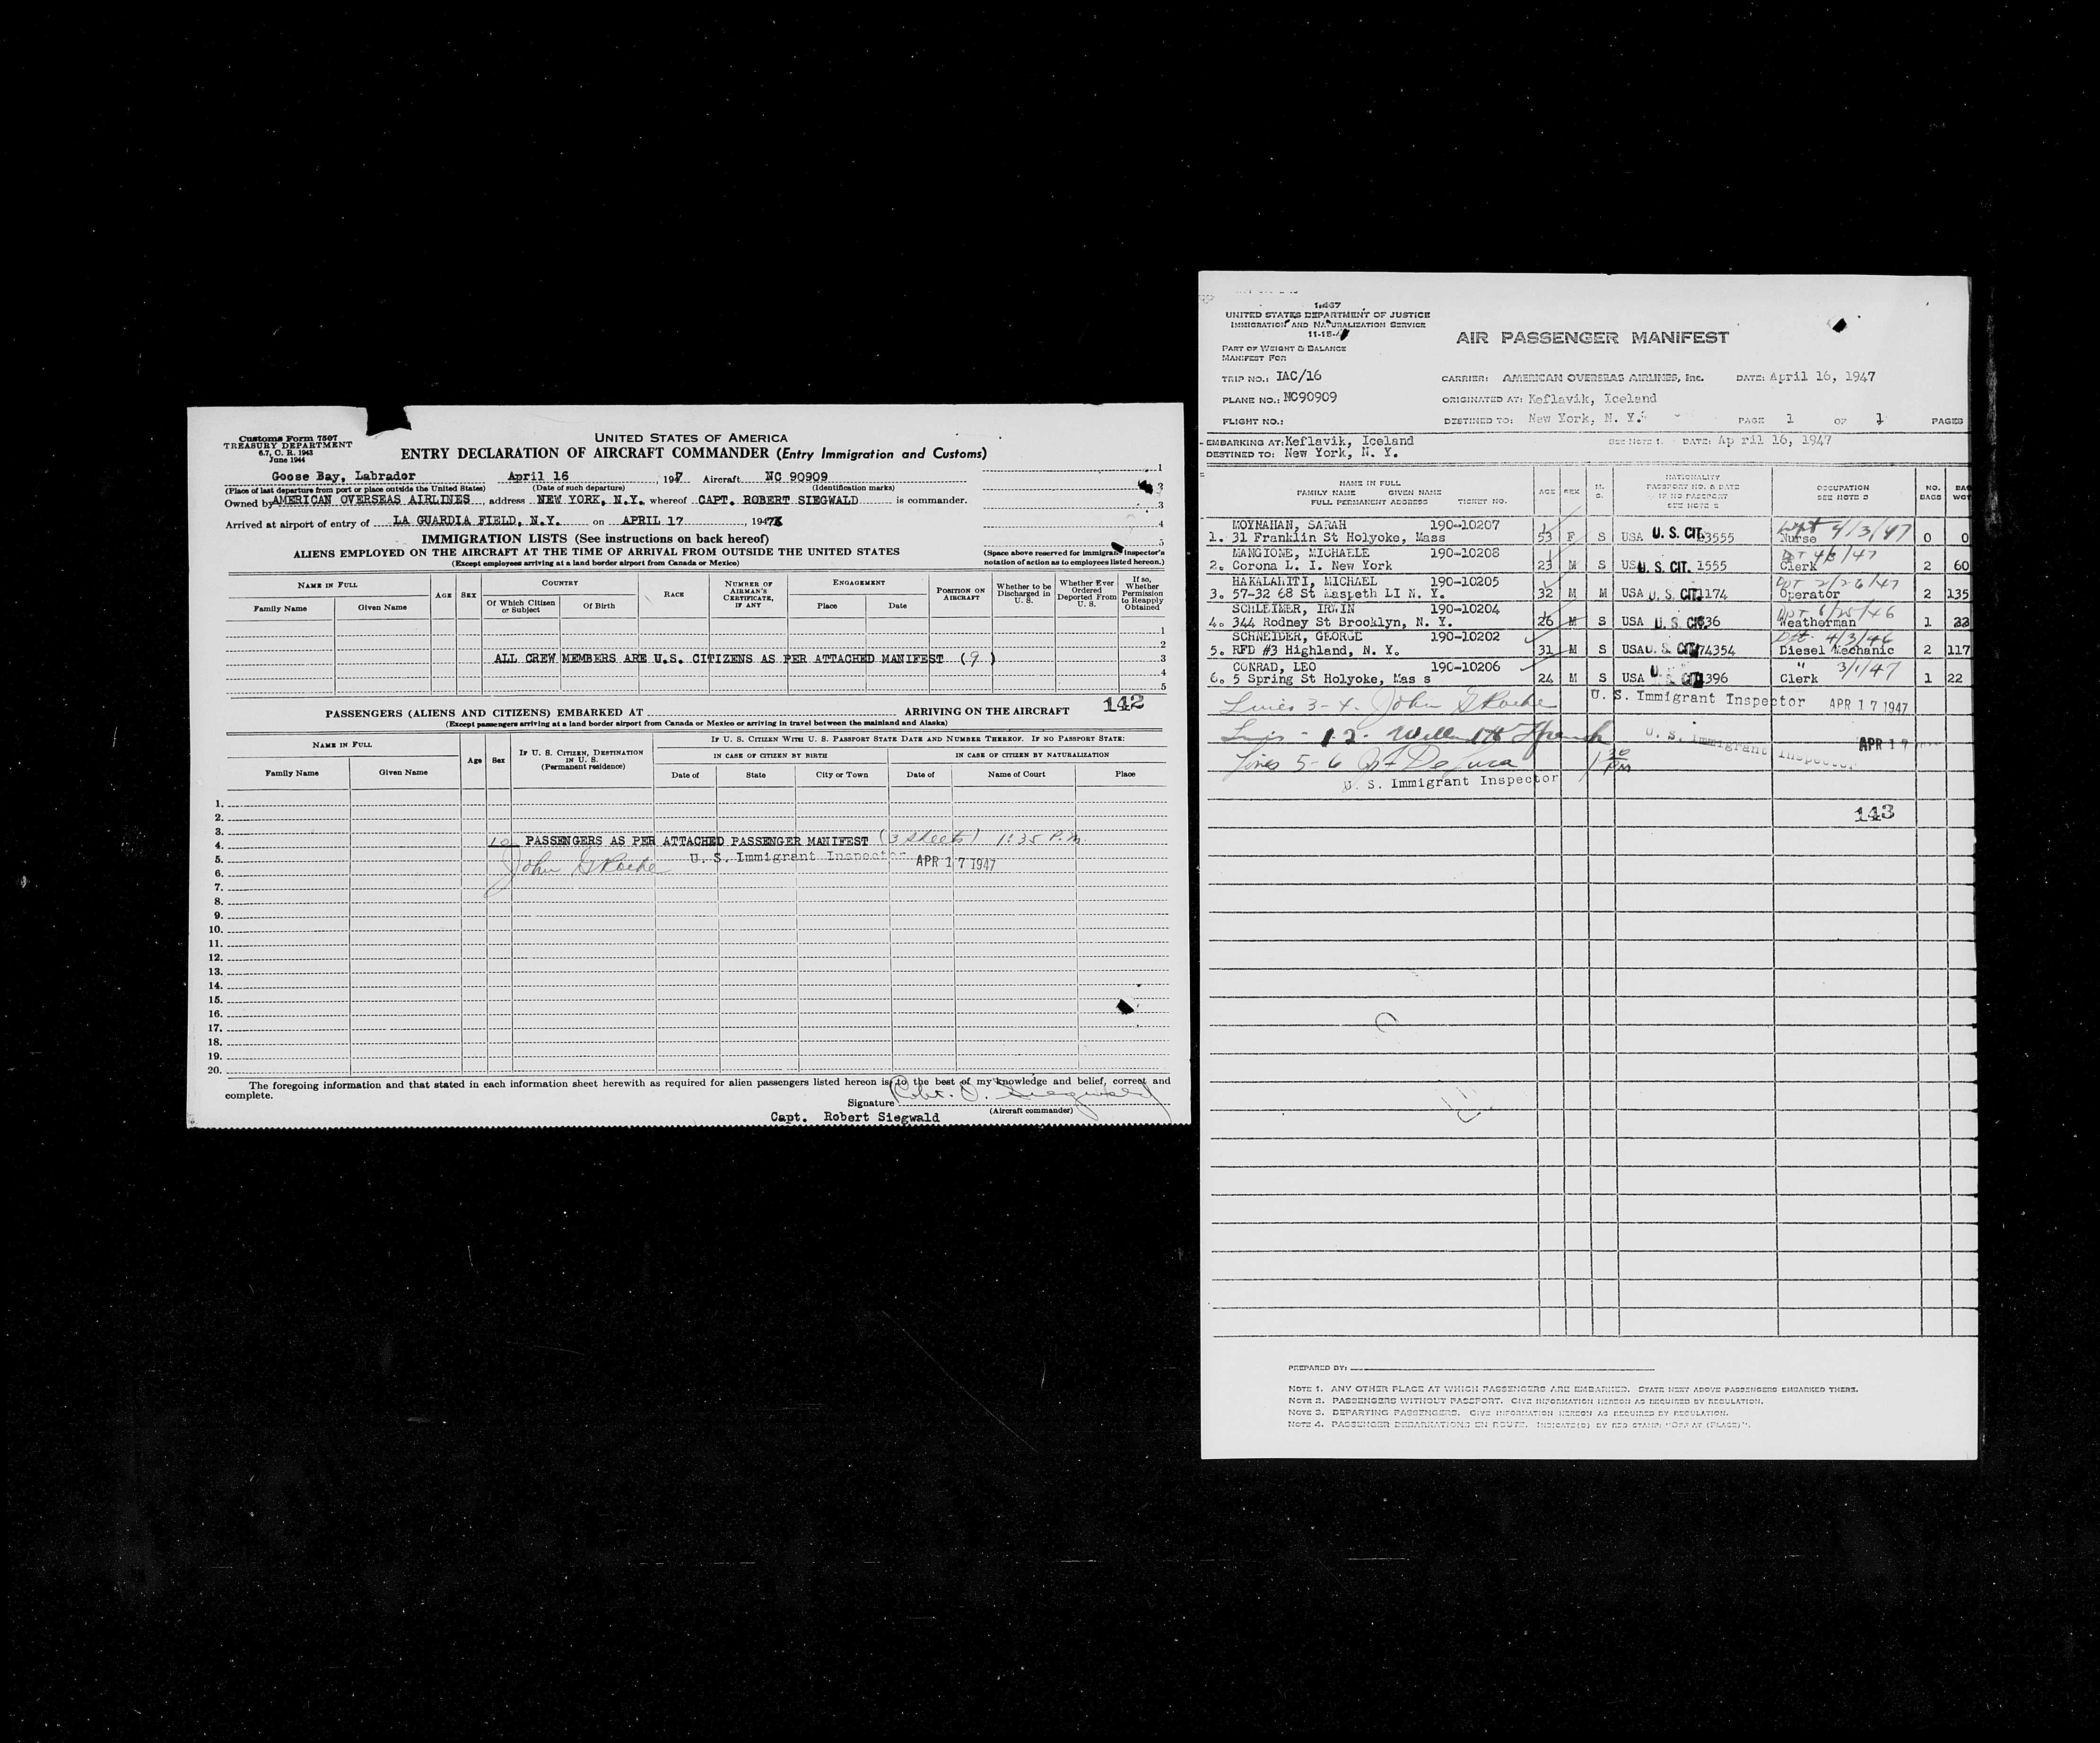 Customs Form 7507
TREASURY DEPARTMENT
6.7, C. R. 1943
June 1944
UNITED STATES OF AMERICA
ENTRY DECLARATION OF AIRCRAFT COMMANDER (Entry Immigration and Customs)
Goose Bay, Labrador April 16, 1947 Aircraft NC 90909
(Place of last departure from port or place outside the United States) (Date of such departure) (Identification marks)
Owned by AMERICAN OVERSEAS AIRLINES, address NEW YORK, N.Y. whereof CAPT. ROBERT SIEGWALD is commander.
Arrived at airport of entry of LA GUARDIA FIELD, N.Y. on APRIL 17, 1947
1
2
3
4
5
IMMIGRATION LISTS (See instructions on back hereof)
ALIENS EMPLOYED ON THE AIRCRAFT AT THE TIME OF ARRIVAL FROM OUTSIDE THE UNITED STATES
(Except employees arriving at a land border airport from Canada or Mexico)
(Space above reserved for immigrant inspector's notation of action as to employees listed hereon.)
NAME IN FULL AGE SEX COUNTRY RACE NUMBER OF AIRMAN'S CERTIFICATE, IF ANY ENGAGEMENT POSITION ON AIRCRAFT Whether to be Discharged in U. S. Whether Ever Ordered Deported From U. S. If so, Whether Permission to Reapply Obtained
Family Name Given Name Of Which Citizen or Subject Of Birth Place Date
1
2
ALL CREW MEMBERS ARE U.S. CITIZENS AS PER ATTACHED MANIFEST (9) 3
4
5
142
PASSENGERS (ALIENS AND CITIZENS) EMBARKED AT ARRIVING ON THE AIRCRAFT
(Except passengers arriving at a land border airport from Canada or Mexico or arriving in travel between the mainland and Alaska)
NAME IN FULL Age Sex IF U. S. CITIZEN, DESTINATION IN U. S. (Permanent residence) IF U. S. CITIZEN WITH U. S. PASSPORT STATE DATE AND NUMBER THEREOF. IF NO PASSPORT STATE:
IN CASE OF CITIZEN BY BIRTH IN CASE OF CITIZEN BY NATURALIZATION
Family Name Given Name Date of State City or Town Date of Name of Court Place
1.
2.
3.
4. PASSENGERS AS PER ATTACHED PASSENGER MANIFEST (3 sheets) 1:35 P.m.
5. U. S. Immigrant Inspector APR 17 1947
6. John G Roche
7.
8.
9.
10.
11.
12.
13.
14.
15.
16.
17.
18.
19.
20.
The foregoing information and that stated in each information sheet herewith as required for alien passengers listed hereon is, to the best of my knowledge and belief, correct and
complete.
Signature Robt. J. Siegwald
(Aircraft commander)
Capt. Robert Siegwald
UNITED STATES DEPARTMENT OF JUSTICE
IMMIGRATION AND NATURALIZATION SERVICE
AIR PASSENGER MANIFEST
PART OF WEIGHT & BALANCE
MANIFEST FOR
TRIP NO.: IAC/16 CARRIER: AMERICAN OVERSEAS AIRLINES, Inc. DATE: April 16, 1947
PLANE NO.: NC90909 ORIGINATED AT: Keflavik, Iceland
FLIGHT NO.: DESTINED TO: New York, N. Y. PAGE 1 OF 1 PAGES
EMBARKING AT: Keflavik, Iceland SEE NOTE 1. DATE: Ap ril 16, 1947
DESTINED TO: New York, N. Y.
NAME IN FULL
FAMILY NAME GIVEN NAME
FULL PERMANENT ADDRESS TICKET NO. AGE SEX M. S. NATIONALITY PASSPORT NO. & DATE IF NO PASSPORT SEE NOTE 2 OCCUPATION SEE NOTE 3 NO. BAGS BAG WGT
MOYNAHAN, SARAH 190-10207 4/3/47
1. 31 Franklin St Holyoke, Mass 53 F S USA U. S. CIT. 3555 Nurse 0 0
MANGIONE, MICHAELE 190-10208
2. Corona L. I. New York 23 M S US U. S. CIT. 1555 Clerk 2 60
HAKALAHTI, MICHAEL 190-10205 Dpt 2/26/47
3. 57-32 68 St Maspeth LI N. Y. 32 M M USA U. S. CIT. 1174 Operator 2 135
SCHLEIMER, IRWIN 190-10204 Dpt 6/25/46
4. 344 Rodney St Brooklyn, N. Y. 26 M S USA U. S. CIT. 36 Weatherman 1 22
SCHNEIDER, GEORGE 190-10202 Dpt. 4/3/46
5. RFD #3 Highland, N. Y. 31 M S USA U. S. CIT. 74354 Diesel Mechanic 2 117
CONRAD, LEO 190-10206 " 3/1/47
6. 5 Spring St Holyoke, Mas s 24 M S USA 1396 Clerk 1 22
Lines 3-4. John G Roche U. S. Immigrant Inspector APR 17 1947
Lines 1-2. U. S. Immigrant Inspector APR 17
Lines 5-6 De Luca
U. S. Immigrant Inspector
143
PREPARED BY:
NOTE 1. ANY OTHER PLACE AT WHICH PASSENGERS ARE EMBARKED. STATE NEXT ABOVE PASSENGERS EMBARKED THERE.
NOTE 2. PASSENGERS WITHOUT PASSPORT. GIVE INFORMATION HEREON AS REQUIRED BY REGULATION.
NOTE 3. DEPARTING PASSENGERS. GIVE INFORMATION HEREON AS REQUIRED BY REGULATION.
NOTE 4. PASSENGER DEBARKATIONS EN ROUTE. INDICATE(D) BY RED STAMP: "OFF AT (PLACE)".